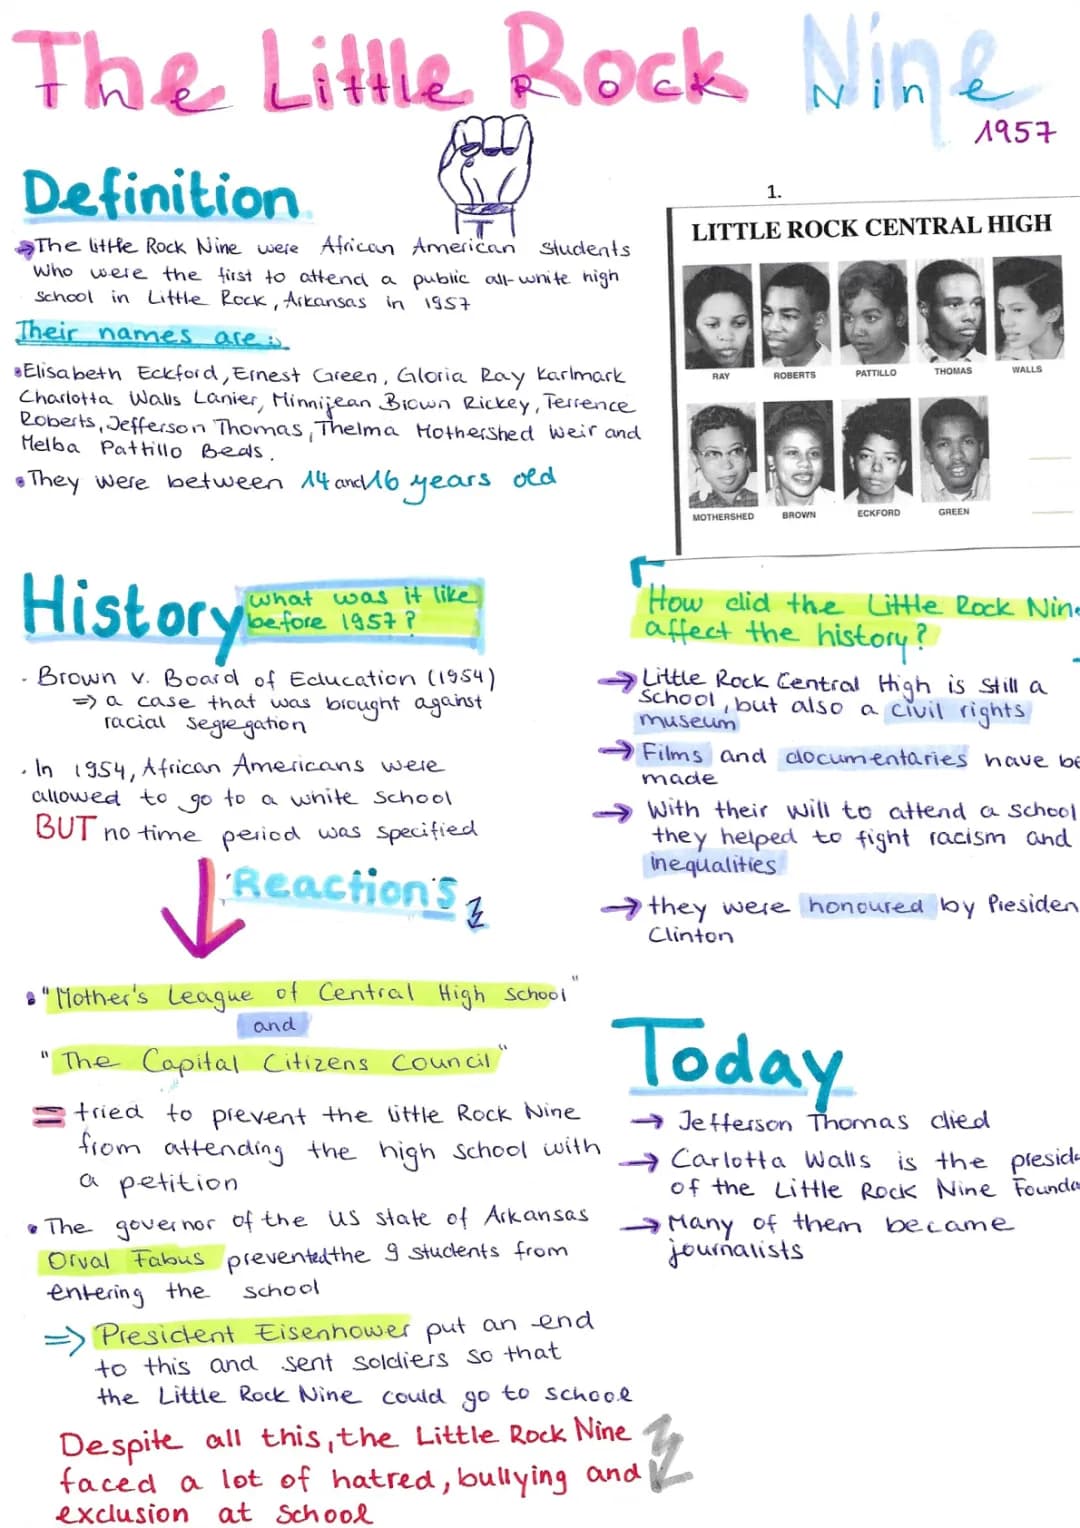 The Little Rock Nine
The Little Rock Nine
1957
Definition
→The little Rock Nine were African American students
who were the first to attend a public all-white high
school in Little Rock, Arkansas in 1957
Their names are:
•Elisabeth Eckford, Ernest Green, Gloria Ray Karlmark
Charlotta Walls Lanier, Minnijean Brown Rickey, Terrence
Roberts, Jefferson Thomas, Thelma Mothershed Weir and
Melba Pattillo Beals.
•They were between 14 and 16 years old
1.
LITTLE ROCK CENTRAL HIGH
RAY ROBERTS PATTILLO THOMAS WALLS
MOTHERSHED BROWN ECKFORD GREEN
History
what was it like
before 1957?
· Brown v. Board of Education (1954)
=> a case that was brought against
racial segregation
· In 1954, African Americans were
allowed to go to a white school
BUT no time period was specified
Reactions
• "Mother's League of Central High School"
and
"The Capital Citizens Council"
= tried to prevent the little Rock Nine
from attending the high school with
a petition
• The governor of the US state of Arkansas
Orval Fabus prevented the 9 students from
entering the school
=> President Eisenhower put an end
to this and sent soldiers so that
the Little Rock Nine could go to school
Despite all this, the Little Rock Nine
faced a lot of hatred, bullying and
exclusion at School
How did the Little Rock Nine
affect the history?
→ Little Rock Central High is still a
school, but also a civil rights
museum
→ Films and documentaries have be
made
→ With their will to attend a school
they helped to fight racism and
inequalities
→ they were honoured by Presiden
Clinton
Today
→ Jefferson Thomas died
→ Carlotta Walls is the preside
of the Little Rock Nine Founda
→ Many of them became
journalists